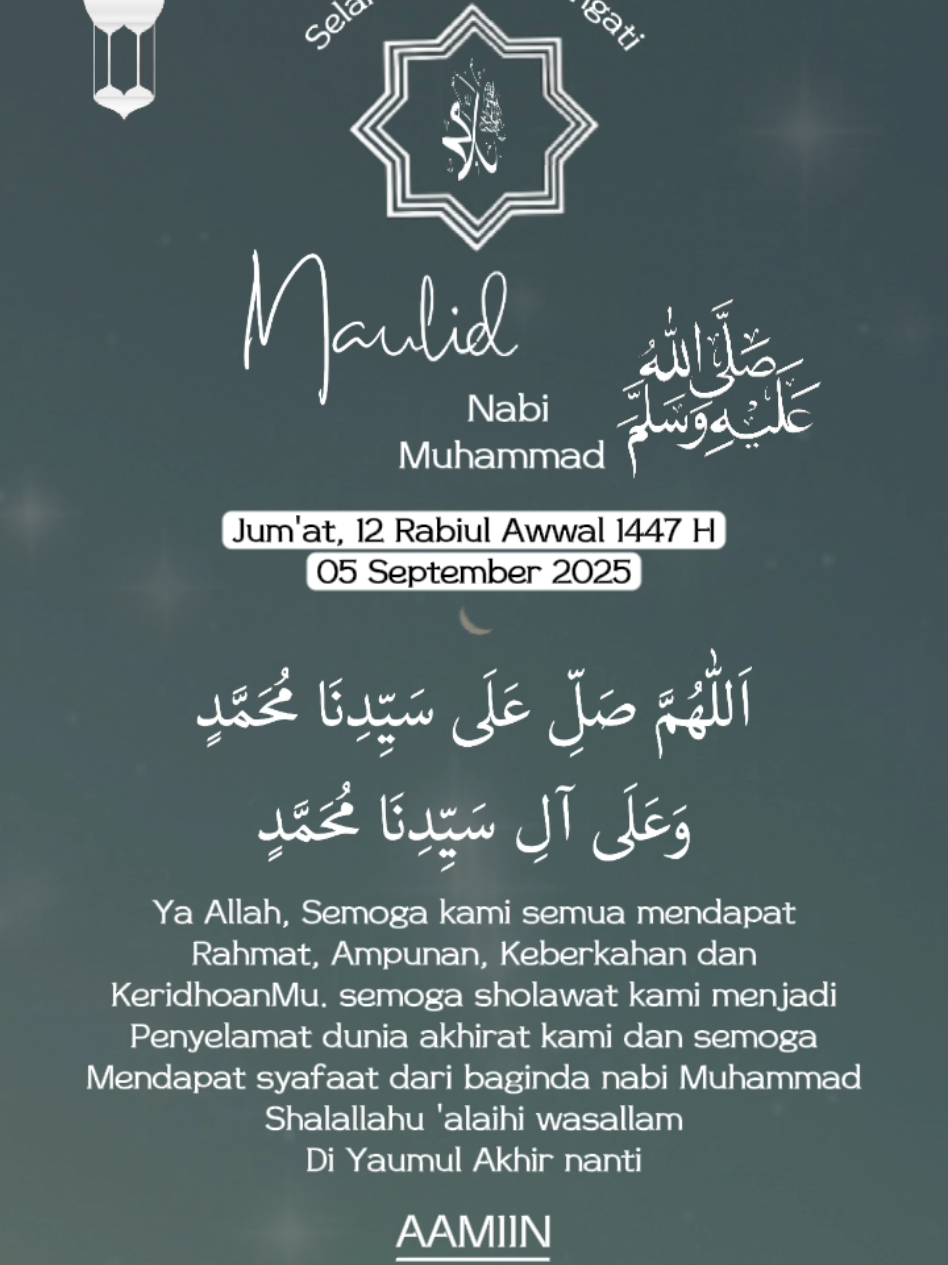 Maulid
Nabi
Muhammad
صَلَّى اللهُ
عَلَيْهِ وَسَلَّمَ
Jum'at, 12 Rabiul Awwal 1447 H
05 September 2025
اَللّٰهُمَّ صَلِّ عَلَى سَيِّدِنَا مُحَمَّدٍ
وَعَلَى آلِ سَيِّدِنَا مُحَمَّدٍ
Ya Allah, Semoga kami semua mendapat
Rahmat, Ampunan, Keberkahan dan
KeridhoanMu. semoga sholawat kami menjadi
Penyelamat dunia akhirat kami dan semoga
Mendapat syafaat dari baginda nabi Muhammad
Shalallahu 'alaihi wasallam
Di Yaumul Akhir nanti
AAMIIN